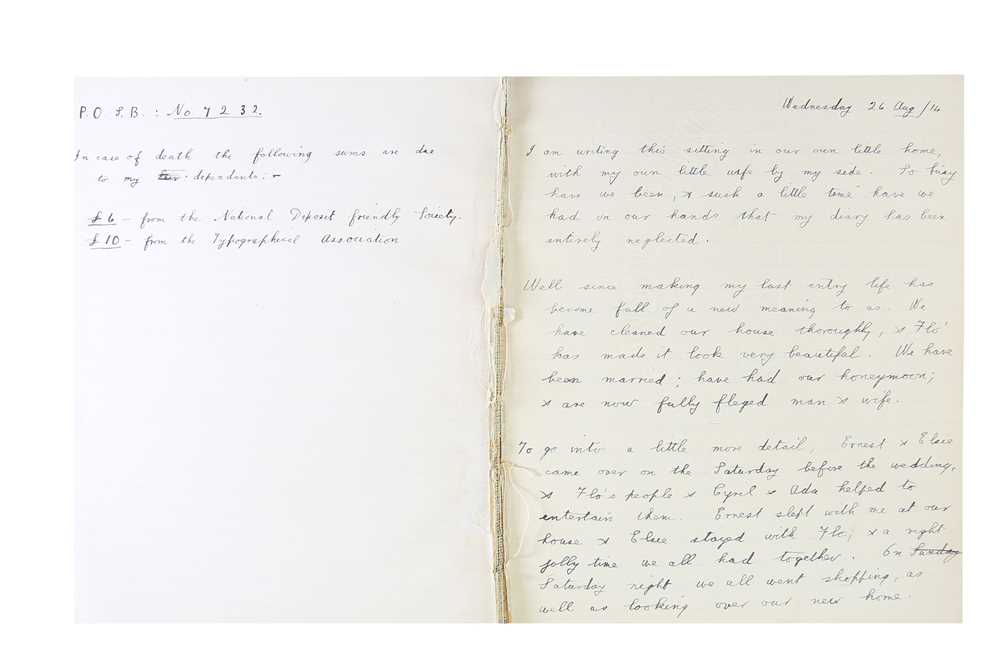 P.O S.B. : No 7232.
In case of death the following sums are due
to my dependents:-
£6 - from the National Deposit Friendly Society.
£10 - from the Typographical Association
Wednesday 26 Aug/14
I am writing this sitting in our own little home,
with my own little wife by my side. So busy
have we been, & such a little time have we
had on our hands that my diary has been
entirely neglected.
Well since making my last entry life has
become full of a new meaning to us. We
have cleaned our house thoroughly, & Flo'
has made it look very beautiful. We have
been married; have had our honeymoon;
& are now fully fleged man & wife.
To go into a little more detail, Ernest & Elsie
came over on the Saturday before the wedding,
& Flo's people & Cyril & Ada helped to
entertain them. Ernest slept with me at our
house & Elsie stayed with Flo; & a right
jolly time we all had together. On Sunday
Saturday night we all went shopping, as
well as looking over our new home.